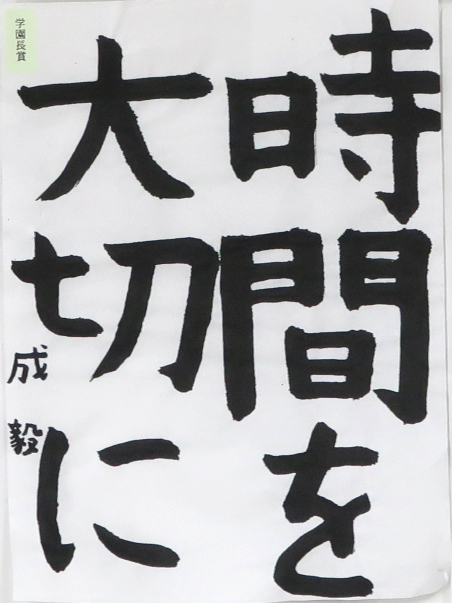 時間を
大切に
成毅
学園長賞